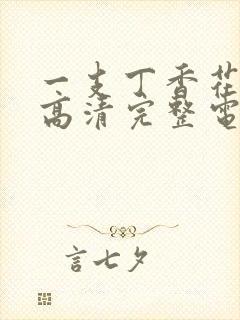 一支丁香花
高清完整电
言七夕